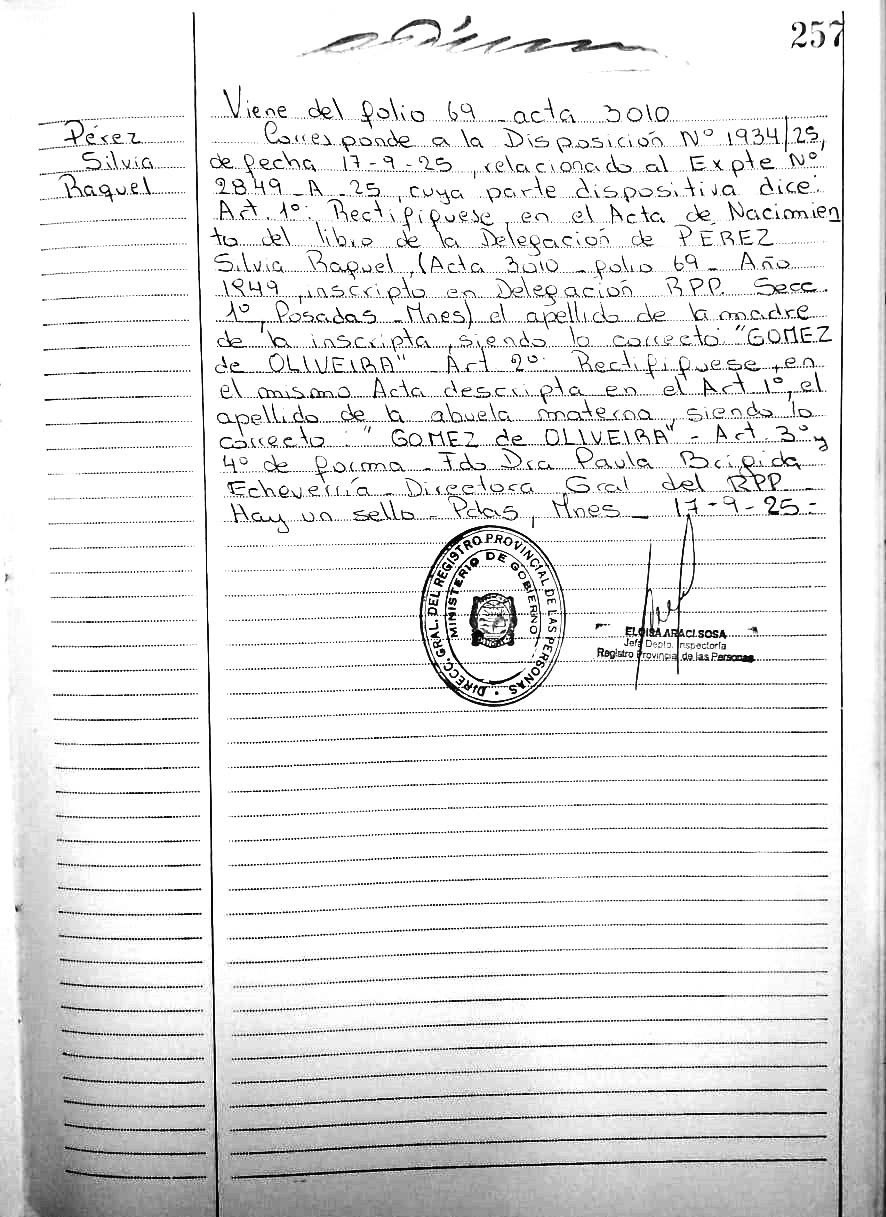 257
Viene del folio 69 - acta 3010
Pérez
Silvia
Raquel
Corresponde a la Disposición N° 1934/25,
de fecha 17-9-25, relacionado al Expte N°
2849-A-25, cuya parte dispositiva dice:
Art. 1°: Rectifíquese, en el Acta de Nacimien
to del libro de la Delegación de PÉREZ
Silvia Raquel, (Acta 3010 - folio 69 - Año
1949, inscripto en Delegación RPP. Secc.
1°, Posadas - Mnes) el apellido de la madre
de la inscripta, siendo lo correcto "GOMEZ
de OLIVEIRA" - Art 2°: Rectifíquese, en
el mismo Acta descripta en el Art 1°, el
apellido de la abuela materna, siendo lo
correcto: "GOMEZ de OLIVEIRA" - Art. 3° y
4° de forma - Fdo Dra Paula Brígida
Echeverría - Directora Gral del RPP -
Hay un sello - Pdas, Mnes - 17-9-25 =
DIRECC. GRAL. DEL REGISTRO PROVINCIAL DE LAS PERSONAS
MINISTERIO DE GOBIERNO
ELOISA ARACI SOSA
Jefe Depto. Inspectoría
Registro Provincial de las Personas